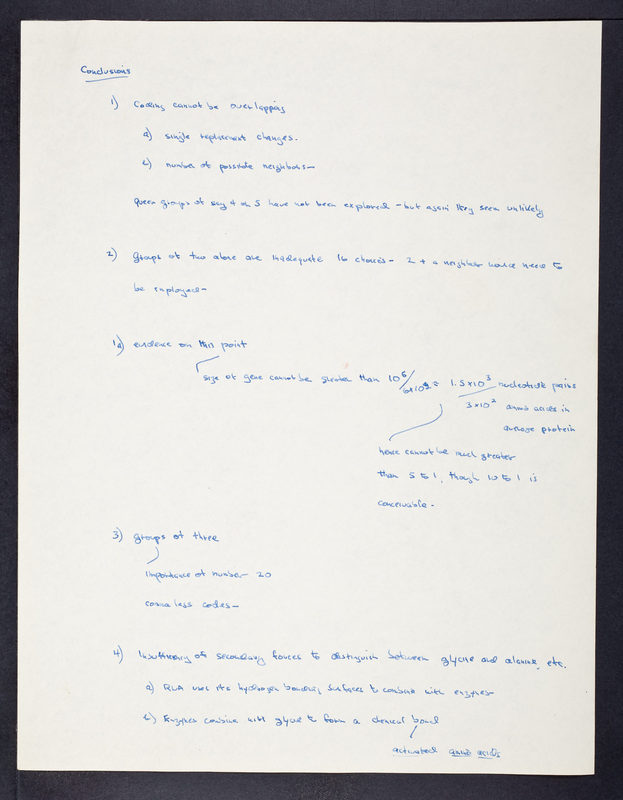 Conclusions
1) Coding cannot be overlapping
a) single replacement changes.
b) number of possible neighbors—
queer groups of say 4 or 5 have not been explored - but again they seem unlikely
2) groups of two alone are inadequate 16 choices - 2 + a neighbor would need to
be employed—
1a) evidence on this point
size of gene cannot be greater than 10⁶/ = 1.5x10³ nucleotide pairs
3x10² amino acids in
average protein
hence cannot be much greater
than 5 to 1, though 10 to 1 is
conceivable.
3) groups of three
importance of number 20
comma less codes—
4) Insufficiency of secondary forces to distinguish between glycine and alanine, etc.
a) RNA uses its hydrogen bonding surfaces to combine with enzymes
b) Enzymes combine with glycine to form a chemical bond
activated amino acids